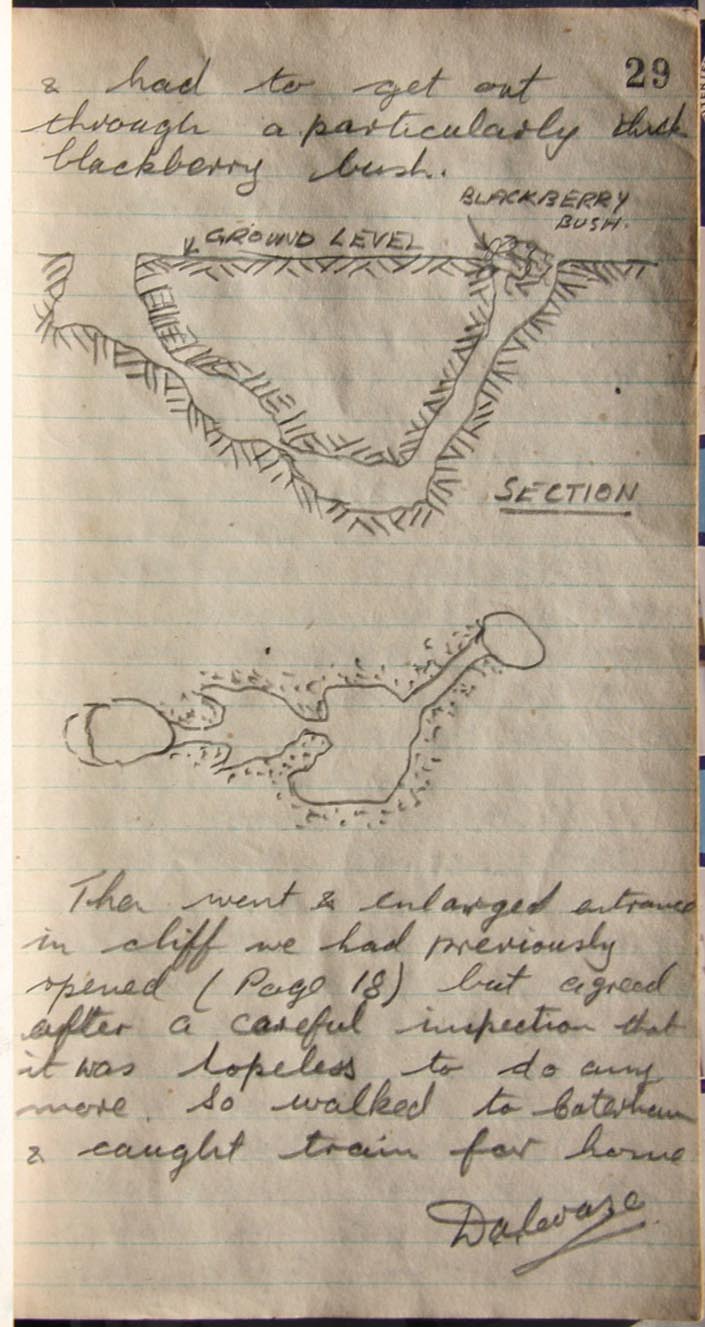 29
& had to get out
through a particularly thick
blackberry bush.
BLACKBERRY
BUSH.
GROUND LEVEL
SECTION
Then went & enlarged entrance
in cliff we had previously
opened (Page 18) but agreed
after a careful inspection that
it was hopeless to do any
more. So walked to Caterham
& caught train for home